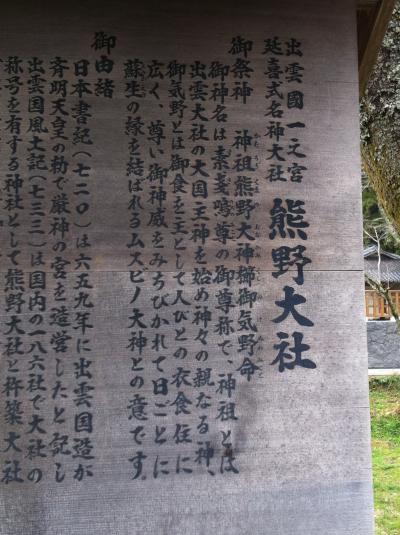 出雲國一之宮
延喜式名神大社
熊野大社
御祭神　神祖熊野大神櫛御気野命
御神名は素戔嗚尊の御尊称で、神祖とは
出雲大社の大国主神を始め神々の親なる神、
御気野とは御食を主として人びとの衣食住に
広く、尊い御神威をみちびかれて日ごとに
蘇生の縁を結ばれるムスビノ大神との意です。
御由緒
日本書紀（七二〇）は六五九年に出雲国造が
斉明天皇の勅で厳神の宮を造営したと記し
出雲国風土記（七三三）は国内の一八六社で大社の
称号を有する神社として熊野大社と杵築大社